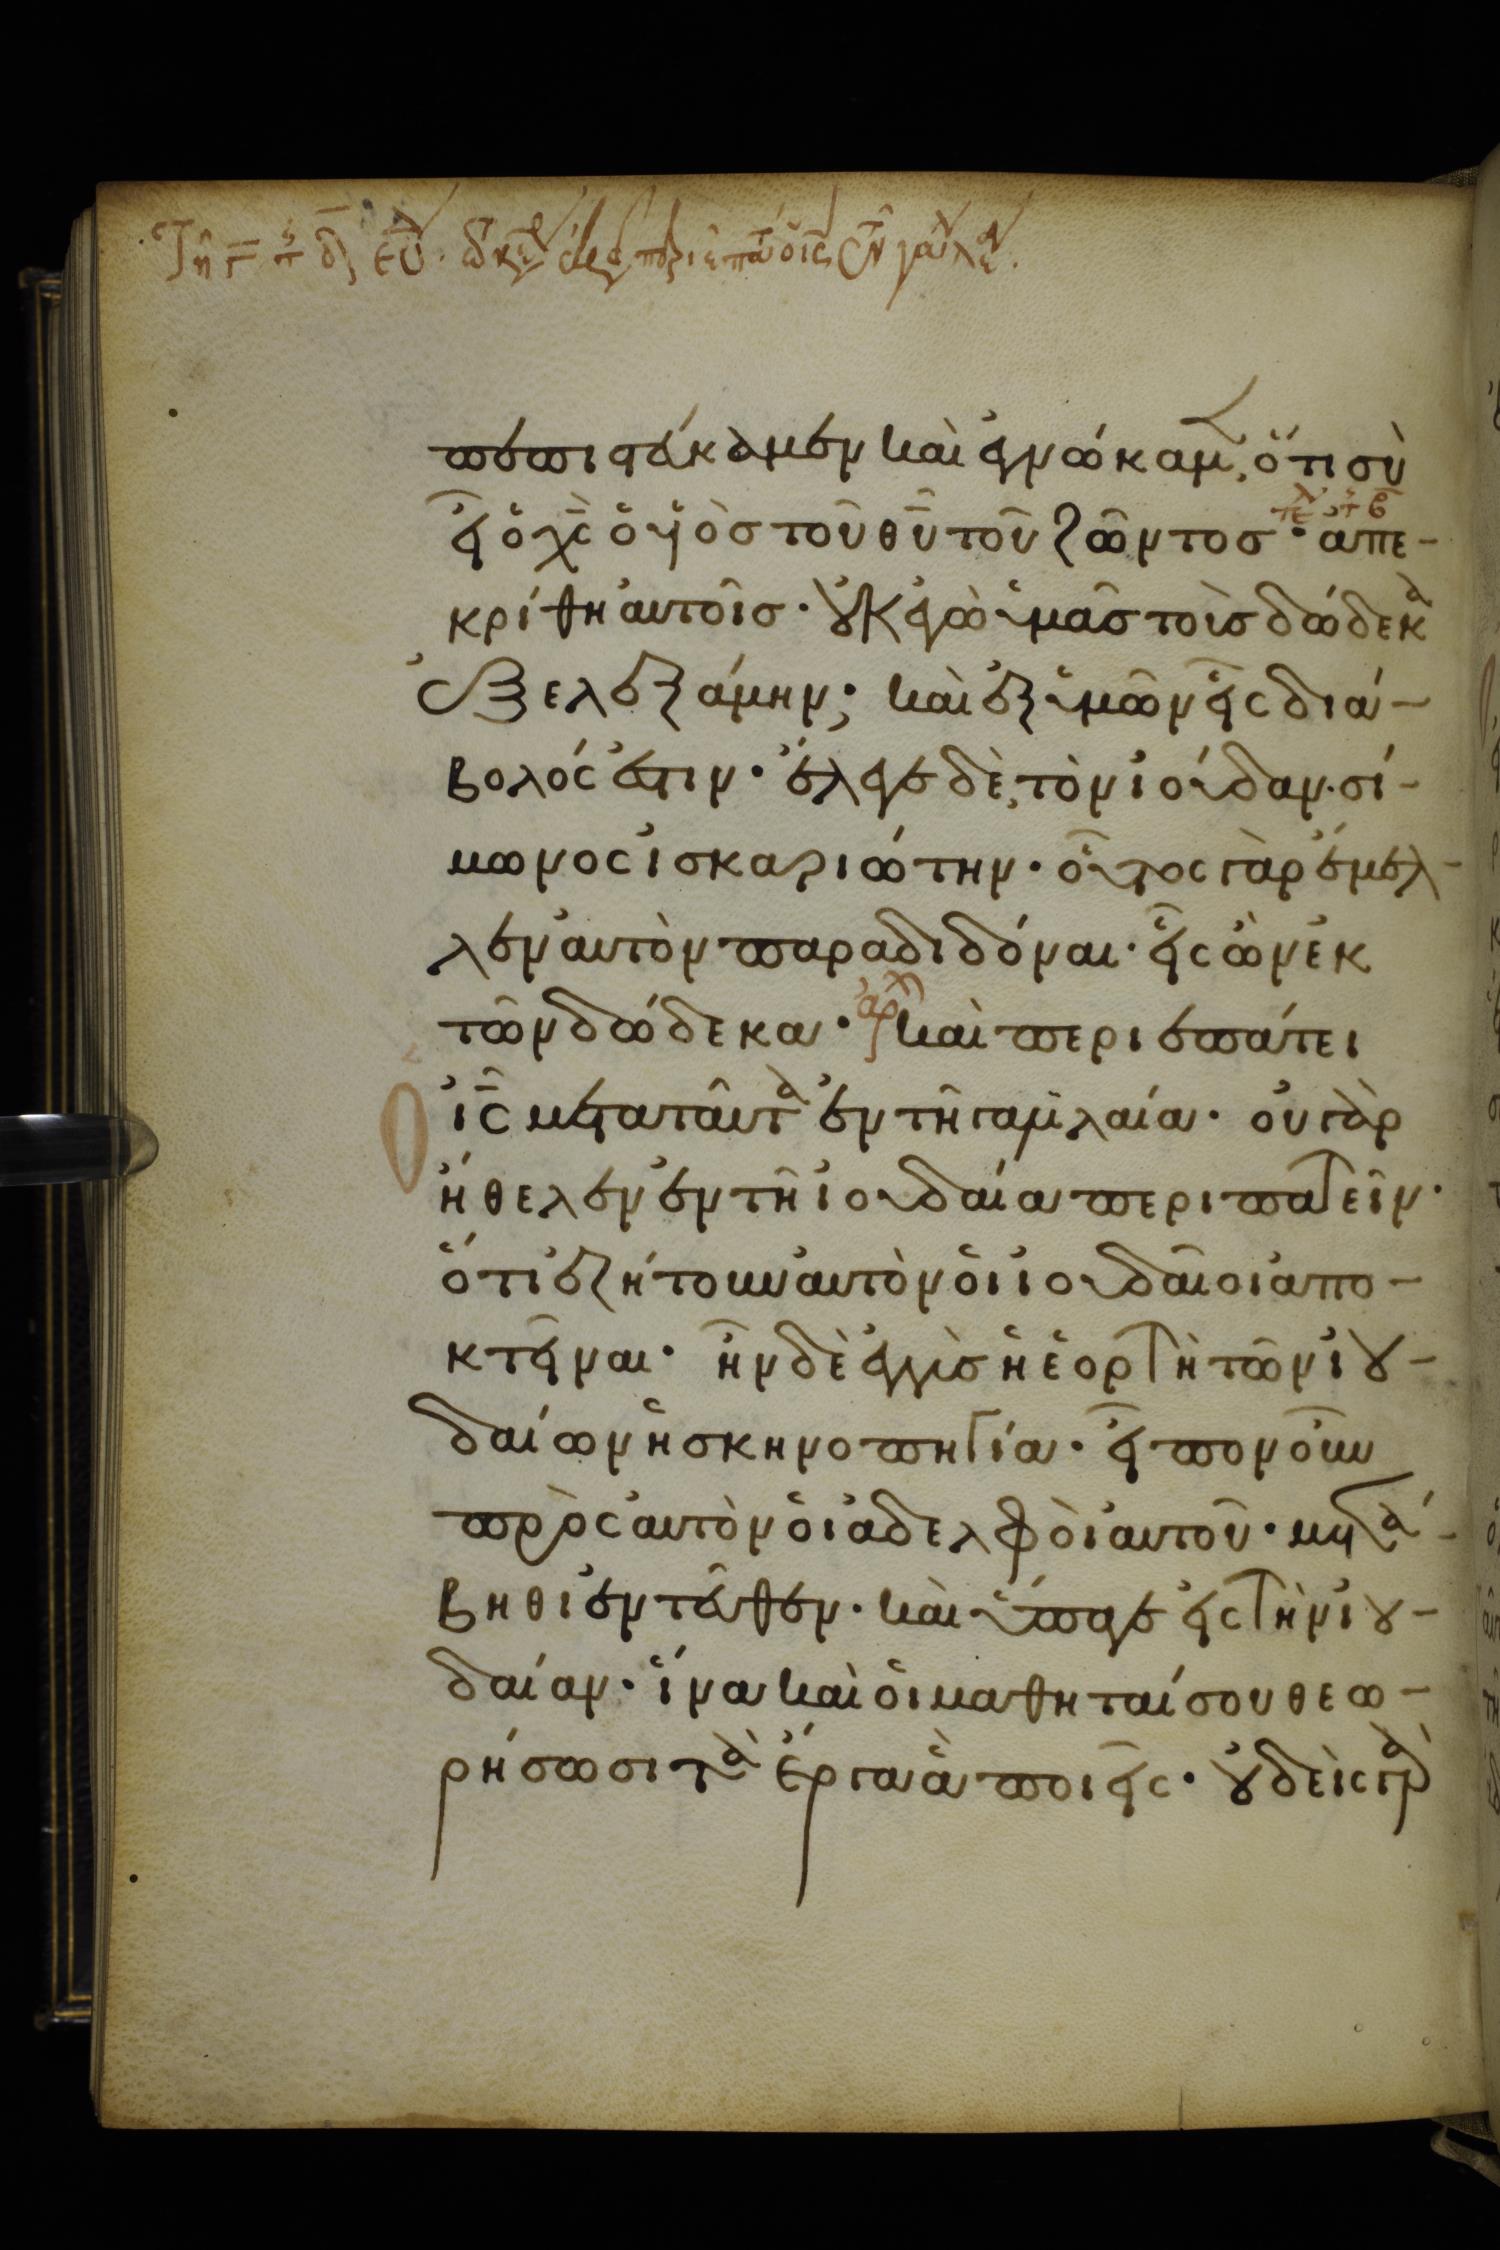 Τῆ γ τ δ ευ τῶ κρ περιεπάτει ὁ ις ἐν τῆ γαλιλ
πεπιστεύκαμεν καὶ ἐγνώκαμ, ὅτι σὺ
εἶ ὁ χς ὁ υἱὸσ τοῦ θυ τοῦ ζῶντοσ · ἀπε-
κρίθη αὐτοῖσ · οὐκ ἐγὼ ὑμᾶσ τοὺσ δώδεκα
ἐξελεξάμην; καὶ ἐξ ὑμῶν εἷς διά-
βολός ἐστιν · ἔλεγε δὲ, τὸν ἰούδαν · σί-
μωνος ἰσκαριώτην · οὗτος γὰρ ἔμελ-
λεν αὐτὸν παραδιδόναι · εἷς ὢν ἐκ
τῶν δώδεκα · ἀρχ καὶ περιεπάτει
ὁ ις μετὰ ταῦτα ἐν τῆ γαλιλαία · οὐ γὰρ
ἤθελεν ἐν τῆ ἰουδαία περιπατεῖν ·
ὅτι ἐζήτουν αὐτὸν οἱ ἰουδαῖοι ἀπο-
κτεῖναι · ἦν δὲ ἐγγὺσ ἡ ἑορτὴ τῶν ἰου-
δαίων ἡ σκηνοπηγία · εἶπον οὖν
πρὸς αὐτὸν οἱ ἀδελφοὶ αὐτοῦ · μετά-
βηθι ἐντεῦθεν · καὶ ὕπαγε εἰς τὴν ἰου-
δαίαν · ἵνα καὶ οἱ μαθηταί σου θεω-
ρήσωσι τὰ ἔργα ἃ ποιεῖς · οὐδεὶς γὰρ